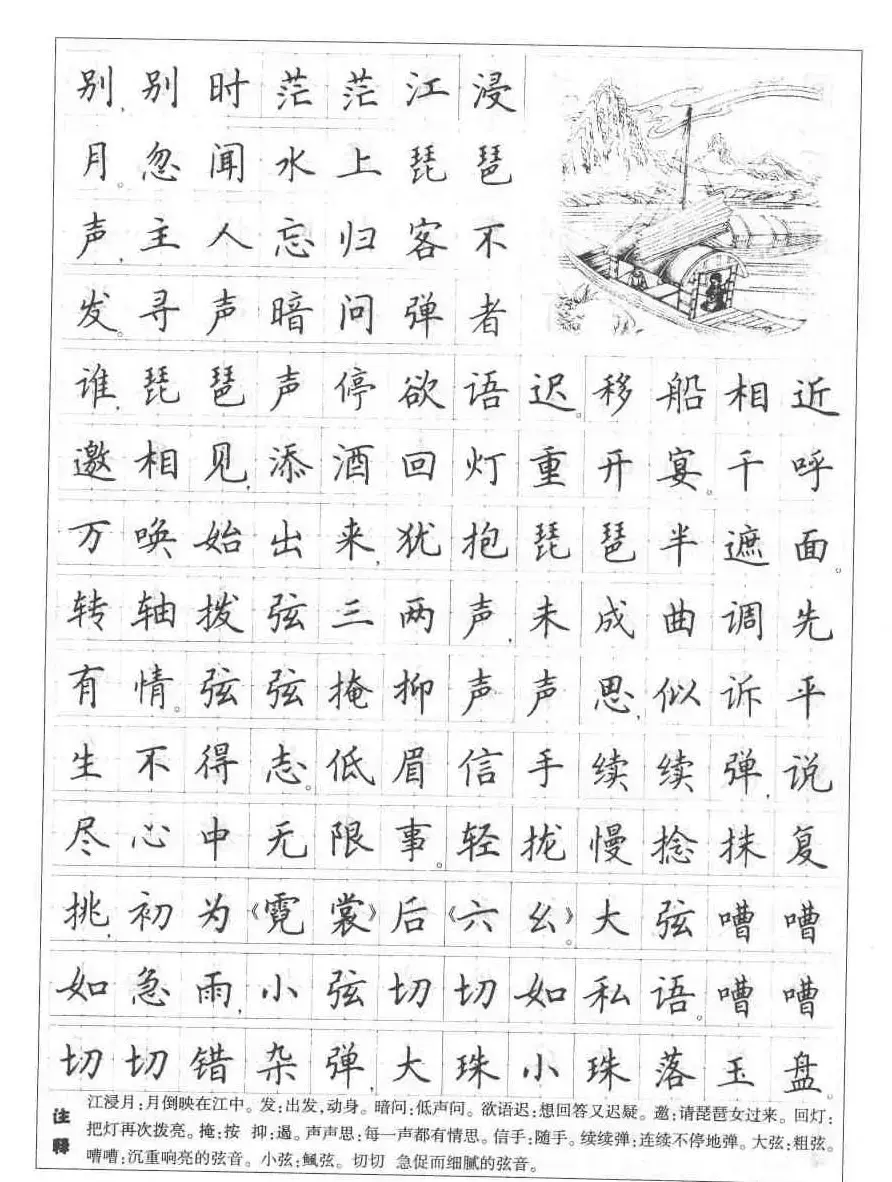 别,别时茫茫江浸
月。忽闻水上琵琶
声,主人忘归客不
发。寻声暗问弹者
谁,琵琶声停欲语迟。移船相近
邀相见,添酒回灯重开宴。千呼
万唤始出来,犹抱琵琶半遮面。
转轴拨弦三两声,未成曲调先
有情。弦弦掩抑声声思,似诉平
生不得志。低眉信手续续弹,说
尽心中无限事。轻拢慢捻抹复
挑,初为《霓裳》后《六幺》。大弦嘈嘈
如急雨,小弦切切如私语。嘈嘈
切切错杂弹,大珠小珠落玉盘。
注释
江浸月:月倒映在江中。发:出发,动身。暗问:低声问。欲语迟:想回答又迟疑。邀:请琵琶女过来。回灯:
把灯再次拨亮。掩:按 抑:遏。声声思:每一声都有情思。信手:随手。续续弹:连续不停地弹。大弦:粗弦。
嘈嘈:沉重响亮的弦音。小弦:细弦。切切 急促而细腻的弦音。